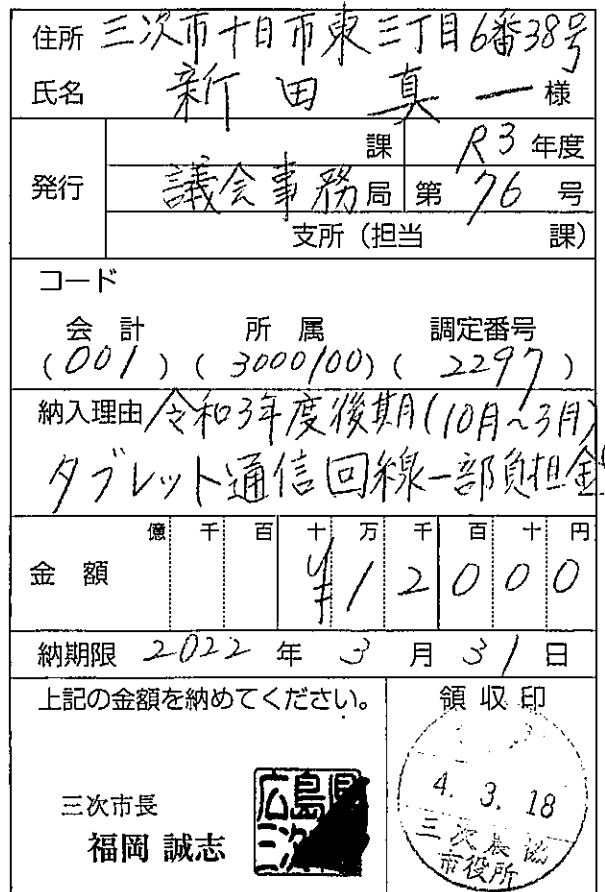 住所 三次市十日市東三丁目6番38号
氏名 新田 真一 様
課 R3 年度
発行 議会事務局 第 76 号
支所（担当 課）
コード
会計 所属 調定番号
(001) (3000100) (2297)
納入理由 令和3年度後期(10月~3月)
タブレット通信回線一部負担金
億 千 百 十 万 千 百 十 円
金額 ¥12000
納期限 2022 年 3 月 31 日
上記の金額を納めてください。 領収印
4. 3. 18
三次市長 三次農協
福岡 誠志 市役所
広島県
三次